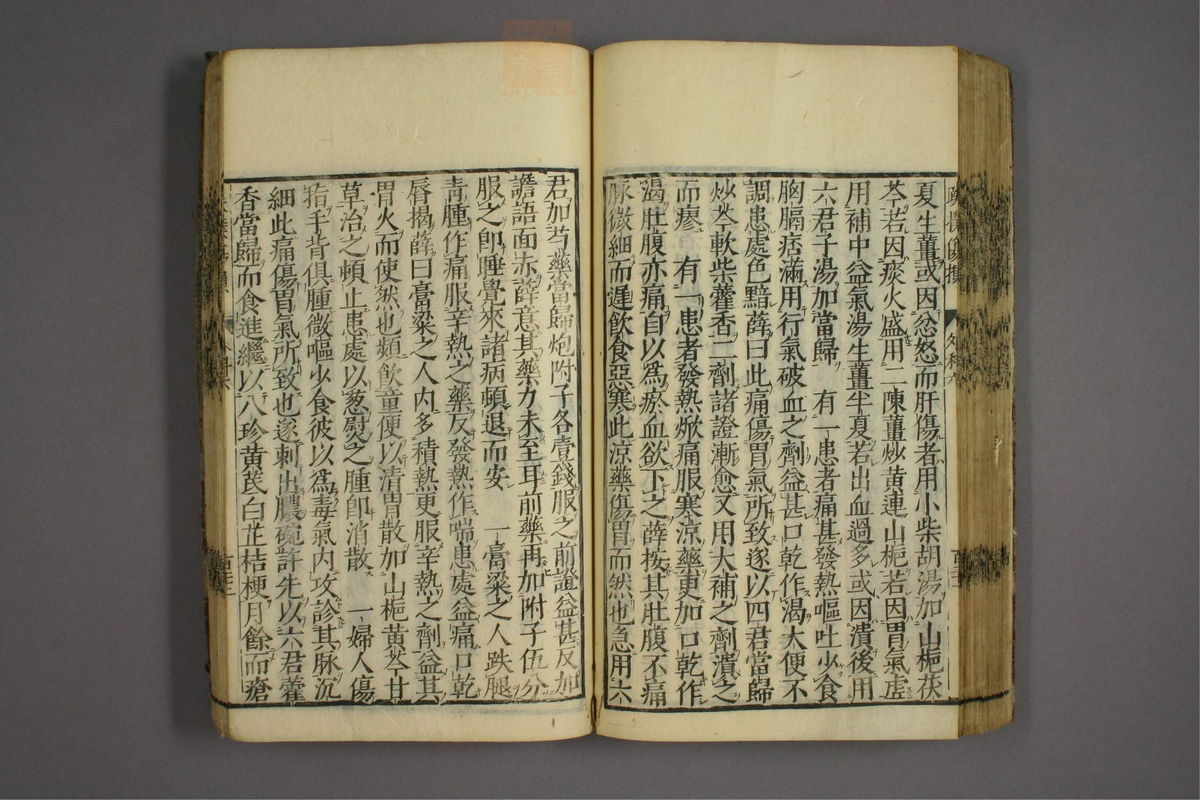 夏生薑或因忿怒而肝傷者用小柴胡湯加山梔茯
苓若因痰火盛用二陳薑炒黃連山梔若因胃氣虛
用補中益氣湯生薑半夏若出血過多或因潰後用
六君子湯加當歸 有一患者痛甚發熱嘔吐少食
胸膈痞滿用行氣破血之劑益甚口乾作渴大便不
調患處色黯薛曰此痛傷胃氣所致遂以四君當歸
炒芩軟柴藿香二劑諸證漸愈又用大補之劑潰之
而瘳 有一患者發熱焮痛服寒涼藥更加口乾作
渴肚腹亦痛自以為瘀血欲下之薛按其肚腹不痛
脉微細而遲飲食惡寒此涼藥傷胃而然也急用六
君加芍藥當歸炮附子各壹錢服之前證益甚反加
譫語面赤薛意其藥力未至耳前藥再加附子伍分
服之卽睡覺來諸病頓退而安 一膏粱之人跌腿
青腫作痛服辛熱之藥反發熱作喘患處益痛口乾
唇揭薛曰膏粱之人内多積熱更服辛熱之劑益其
胃火而使然也頻飲童便以清胃散加山梔黃芩甘
草治之頓止患處以葱熨之腫卽消散 一婦人傷
指手背俱腫微嘔少食彼以為毒氣内攻診其脉沉
細此痛傷胃氣所致也遂刺出膿碗許先以六君藿
香當歸而食進繼以八珍黃芪白芷桔梗月餘而瘡